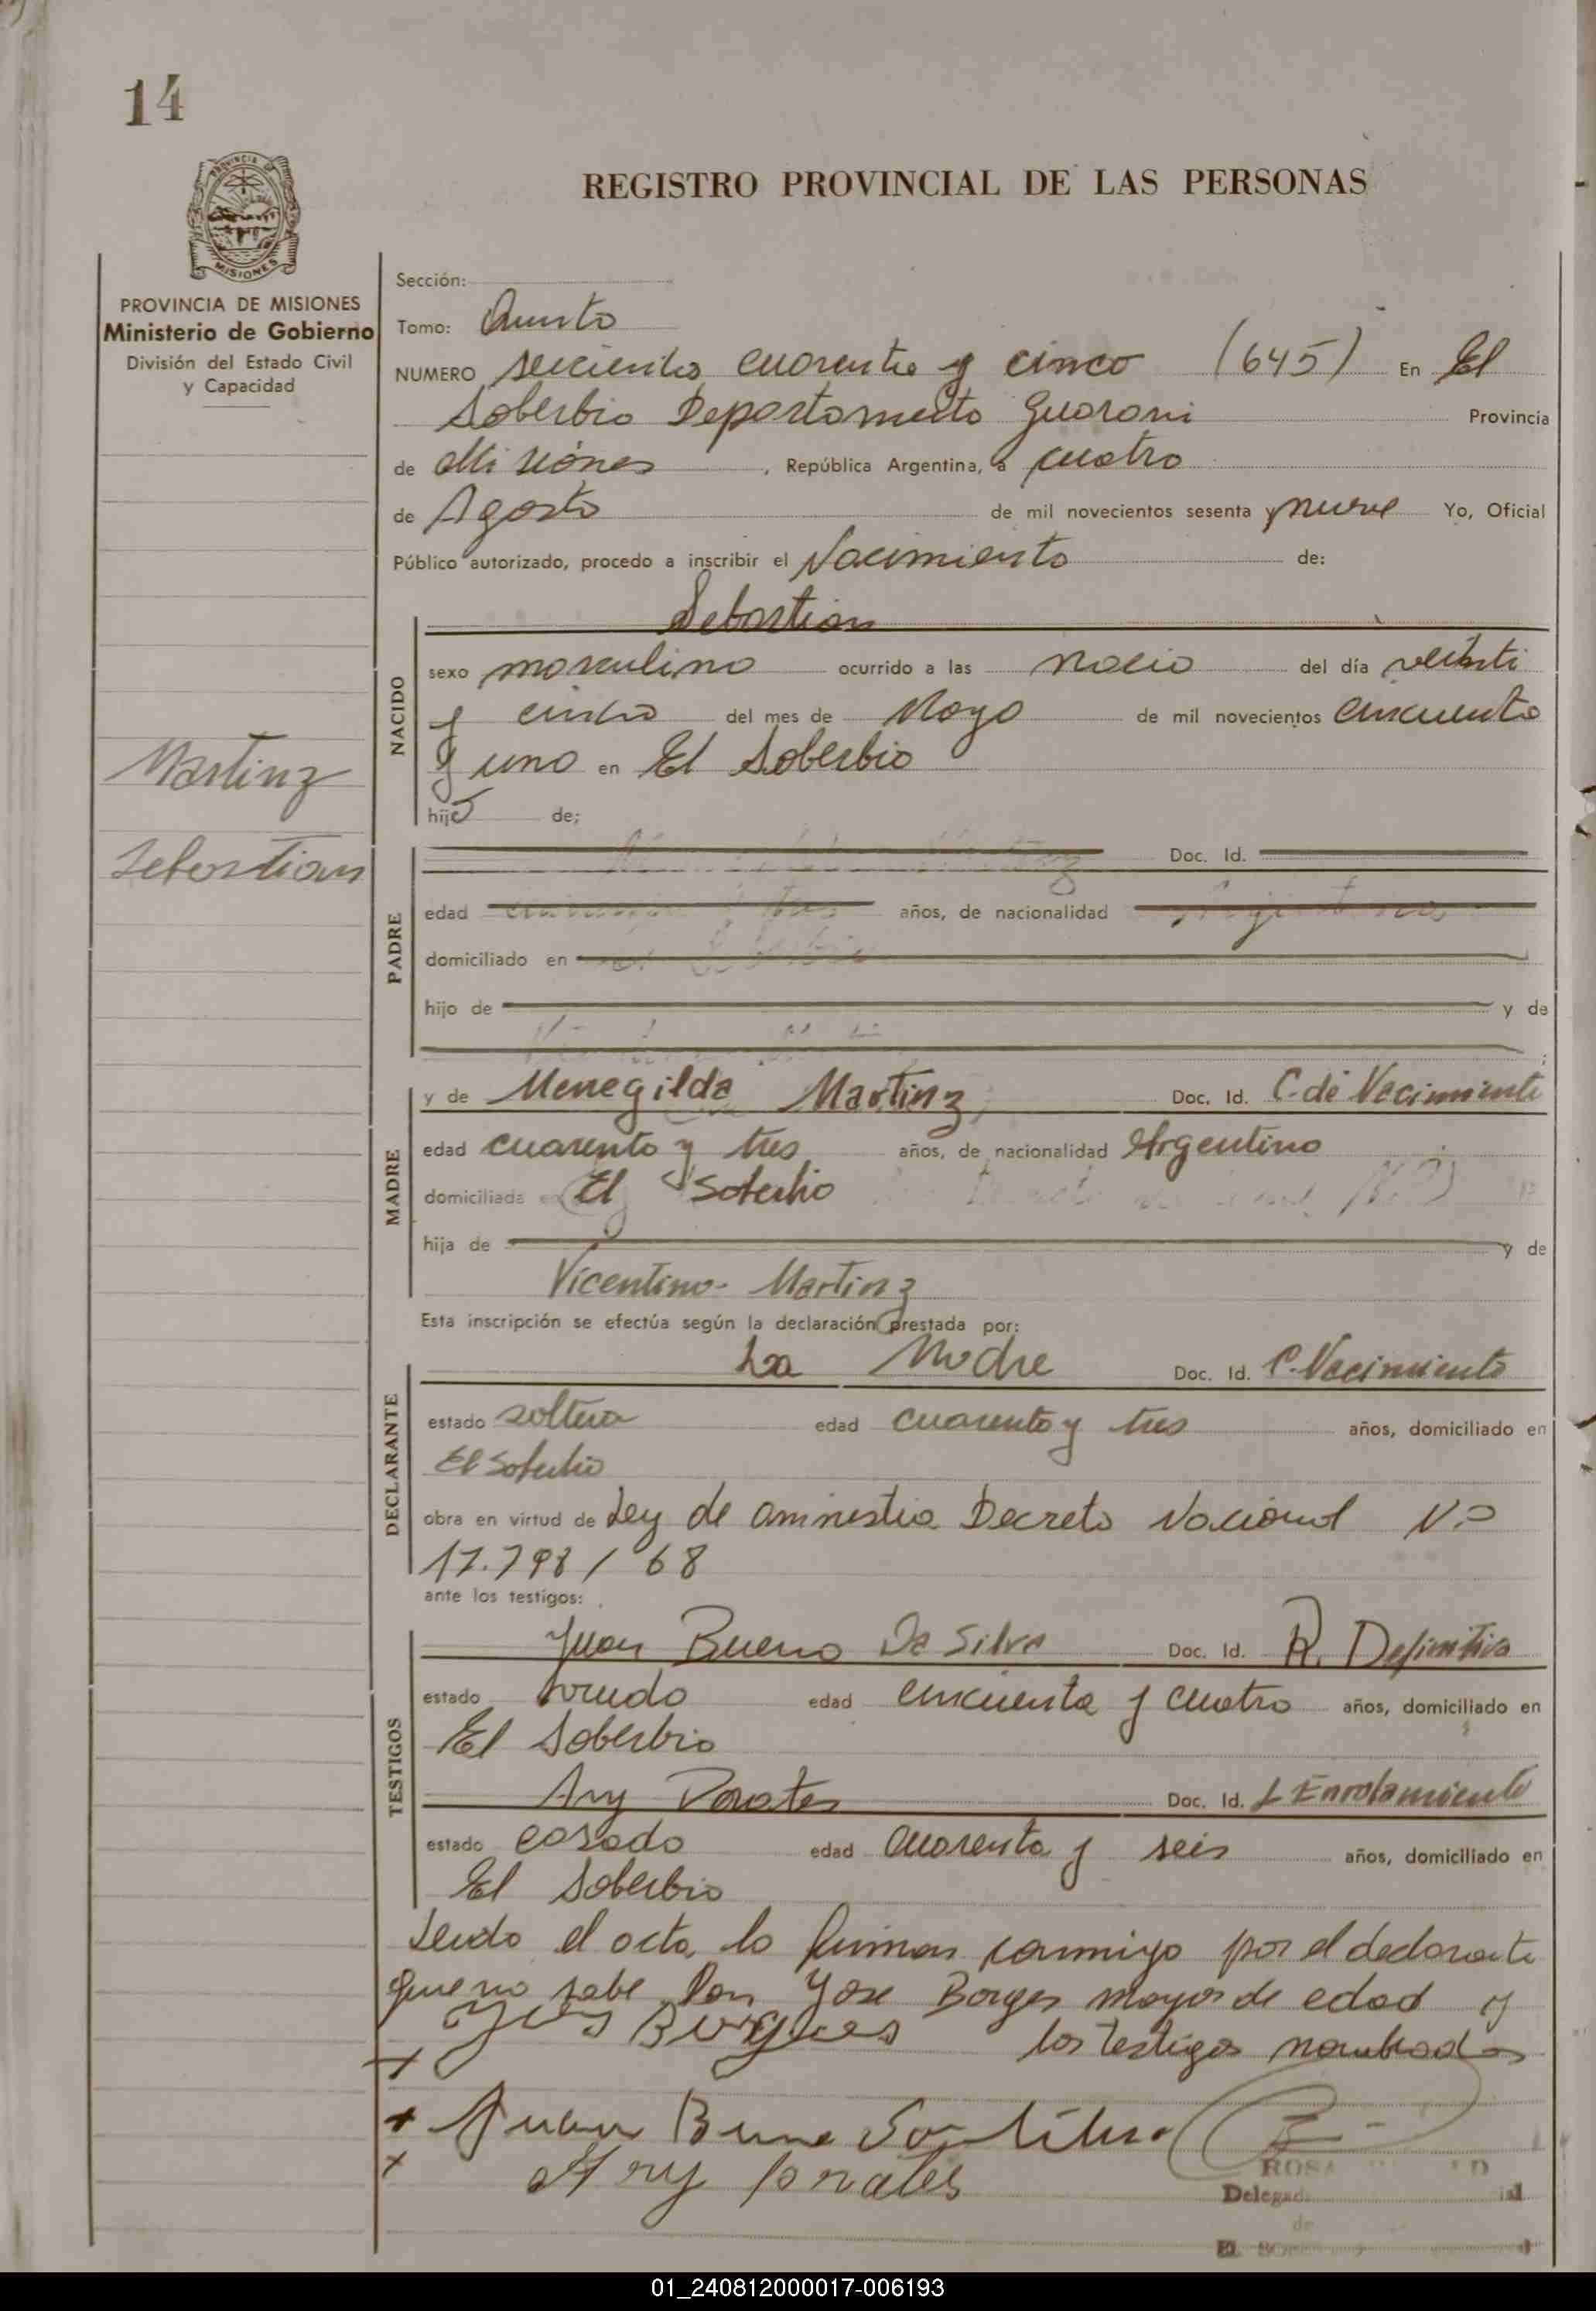 14
PROVINCIA DE
MISIONES
REGISTRO PROVINCIAL DE LAS PERSONAS
PROVINCIA DE MISIONES
Ministerio de Gobierno
División del Estado Civil
y Capacidad
Martinz
Sebastian
Sección:
Tomo: Quinto
NUMERO seiscientos cuarenta y cinco (645) En El
Soberbio Departamento Guarani Provincia
de Misiones, República Argentina, a cuatro
de Agosto de mil novecientos sesenta y nueve Yo, Oficial
Público autorizado, procedo a inscribir el Nacimiento de:
NACIDO
Sebastian
sexo masculino ocurrido a las del día veinti
y cinco del mes de Mayo de mil novecientos cincuenta
y uno en El Soberbio
hijo de;
PADRE
Doc. Id.
edad años, de nacionalidad
domiciliado en
hijo de y de
MADRE
y de Menegilda Martinz Doc. Id. C. de Nacimiento
edad cuarenta y tres años, de nacionalidad Argentina
domiciliada en El Soberbio
hija de y de
Vicentina Martinz
Esta inscripción se efectúa según la declaración prestada por:
DECLARANTE
La Madre Doc. Id. C. Nacimiento
estado soltera edad cuarenta y tres años, domiciliado en
El Soberbio
obra en virtud de Ley de amnistia Decreto Nacional Nº
17.798 / 68
ante los testigos:
TESTIGOS
Juan Bueno Da Silva Doc. Id. R. Definitiva
estado viudo edad cincuenta y cuatro años, domiciliado en
El Soberbio
Ary Doc. Id. L Enrolamiento
estado casado edad cuarenta y seis años, domiciliado en
El Soberbio
Leido el acta, lo firman conmigo por el declarante
que no sabe Don Jose Borges mayor de edad y
los testigos nombrados
Juan Bueno
Ary
Delegad
de
EL
01_240812000017-006193